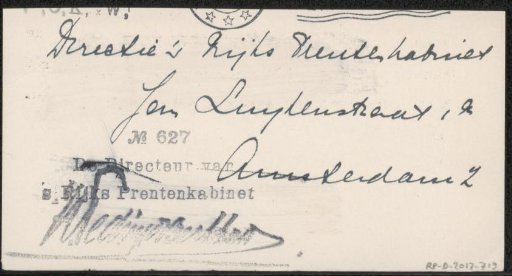 P.O.K. W!
Directie 's Rijks Prentenkabinet
Jan Luykenstraat 1a
Amsterdam Z
№ 627
De Directeur van
's Rijks Prentenkabinet
RP-D-2017-713